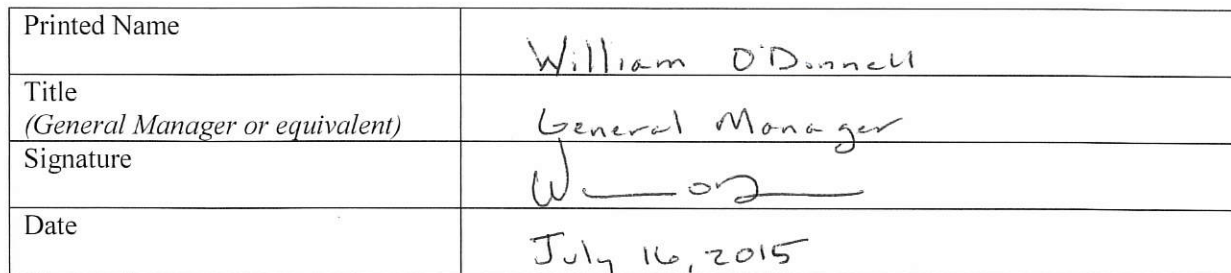 Printed Name
William O'Donnell
Title
(General Manager or equivalent)
General Manager
Signature
Date
July 16, 2015